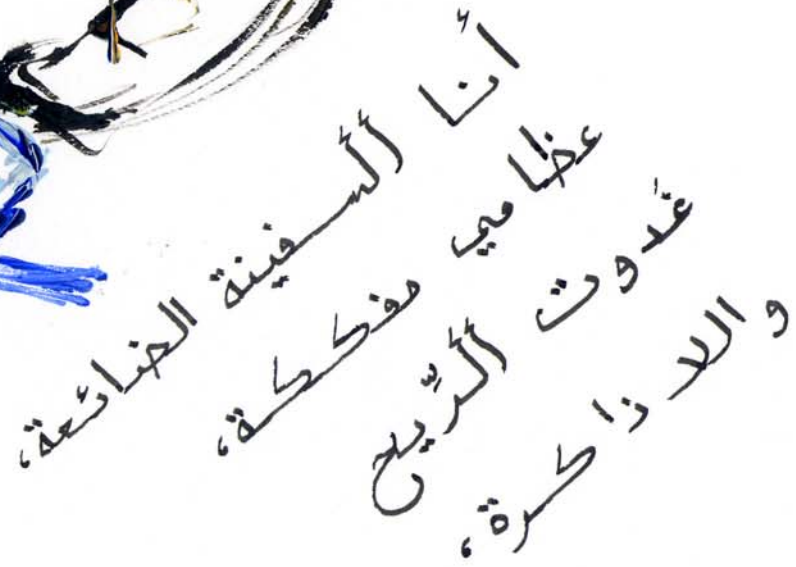 أنا ألسفينة الضائعة،
عظامي مفككة،
غدوت ألرِّيح
واللا ذاكرة،